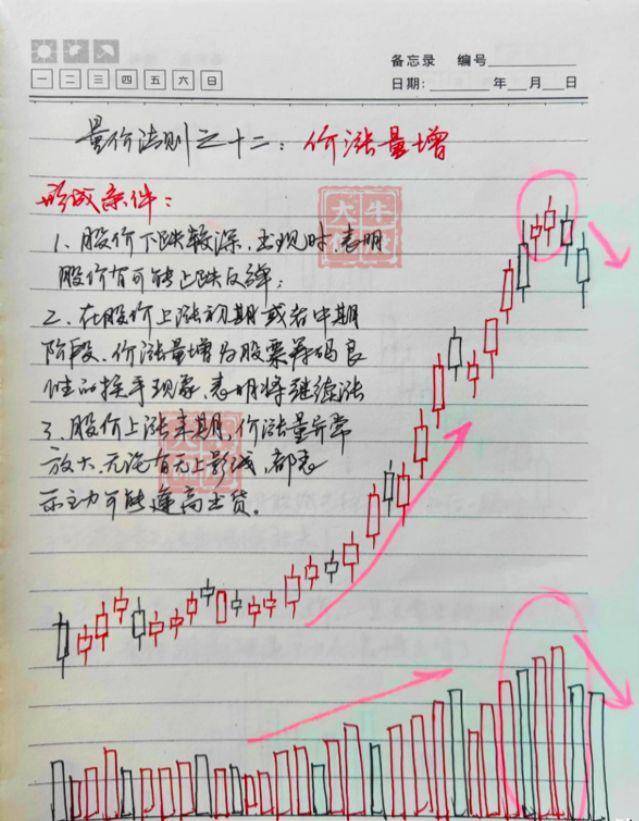 备忘录 编号
一 二 三 四 五 六 日
日期: 年 月 日
量价法则之十二：价涨量增
形成条件：
1、股价下跌较深，出现时，表明
股价有可能止跌反弹；
2、在股价上涨初期或者中期
阶段，价涨量增为股票筹码良
性的换手现象，表明将继续涨
3、股价上涨末期，价涨量异常
放大，无论有无上影线，都表
示主力可能逢高出货。